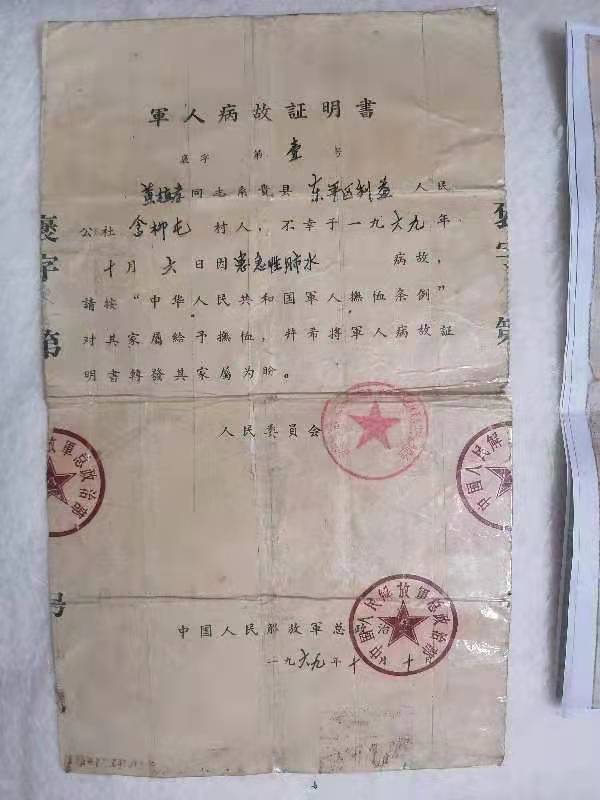 軍人病故証明書
褒字 第 壹 号
黄植考同志系贵县 东平区利益 人民
公社 含柳屯 村人，不幸于一九六九年
十月 六 日因患急性肺水 病故，
請按“中华人民共和国軍人撫恤条例”
对其家屬給予撫恤，幷希將軍人病故証
明書轉發其家屬为盼。
人民委員会
中国人民解放軍总政治
一九六九年十月十
褒字第
号
軍总政治部
中國人民解
中國人民解放軍总政治部